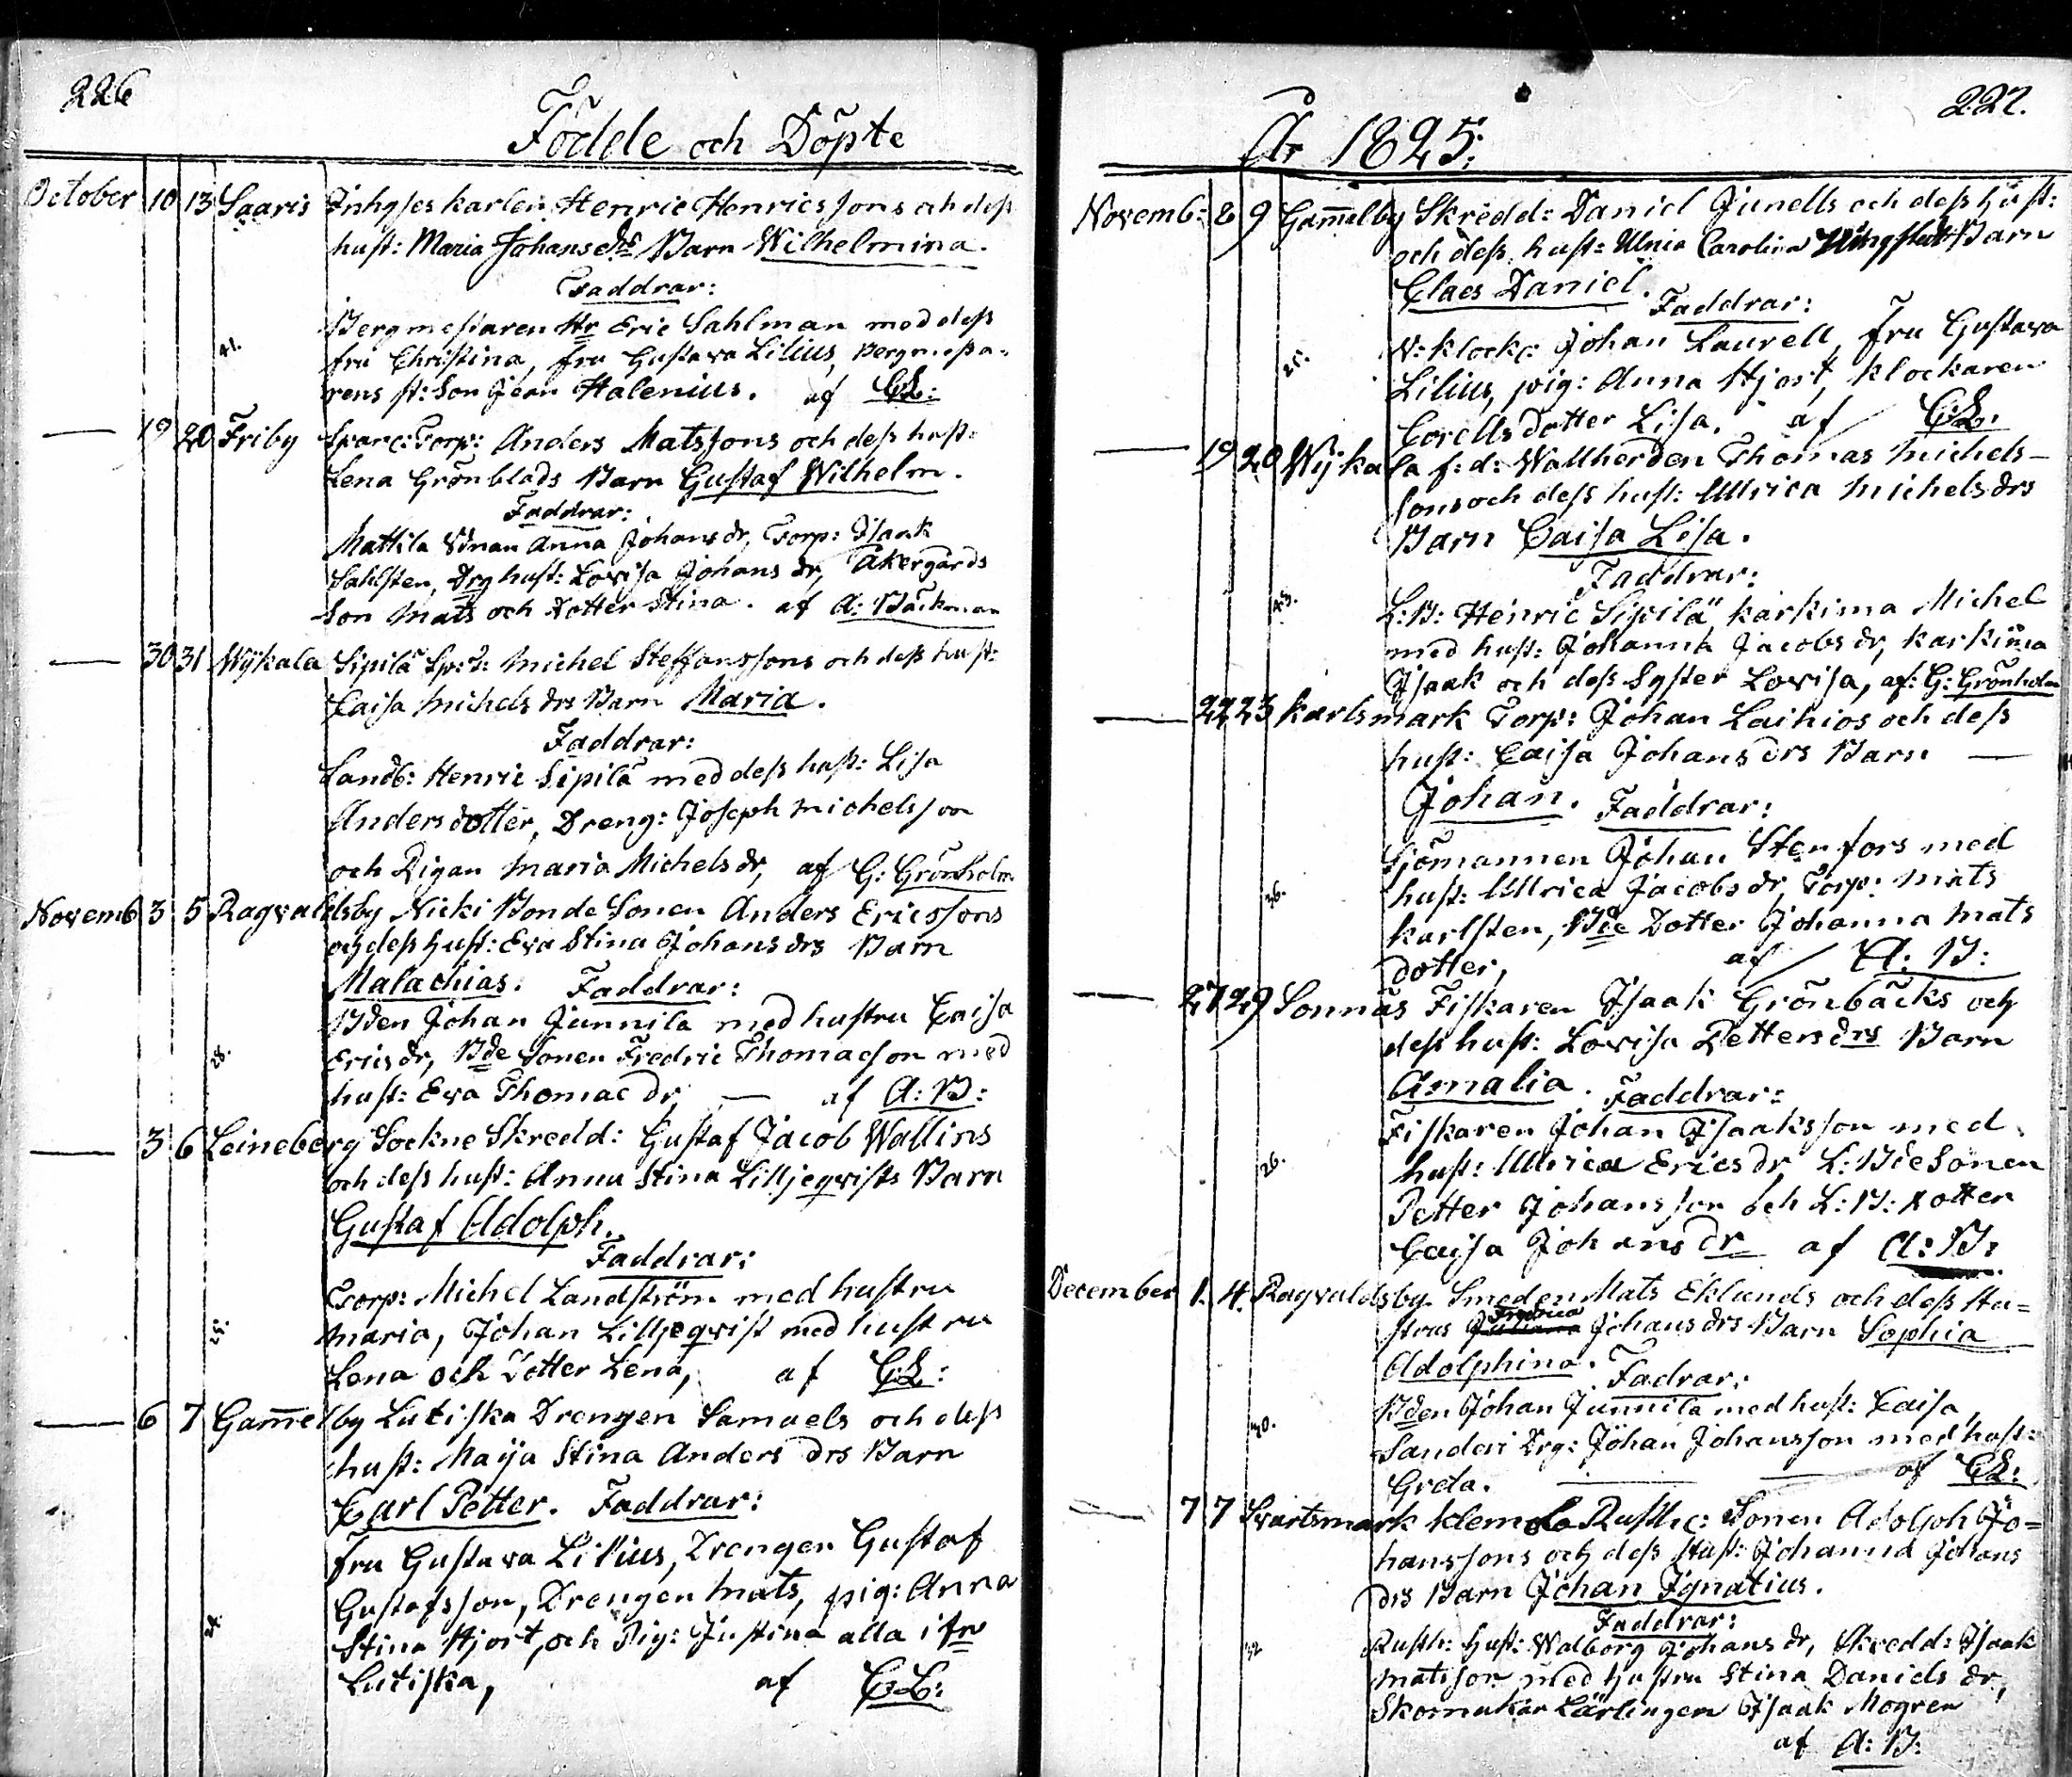 226
Födde och Döpte
October 10 13 Saaris Inhyses karlen Henric Henricssons och dess
hust: Maria Johansdrs Barn Wilhelmina.
Faddrar:
Bergmestaren Hr Eric Sahlman med dess
41. fru Christina, fru Gustava Lilius, Bergmesta-
rens st: Son Jean Halenius. af CL:
— 19 20 Friby Torp: Anders Matssons och dess hust:
Lena Grönblads Barn Gustaf Wilhelm.
Faddrar:
Mattila Anna Johansdr, Torp: Isaak
Sahlsten, Drg hust: Lovisa Johansdr, Åkergårds
Son Mats och Dotter Stina. af A: Bäckman
— 30 31 Wykala Sipilä Michel Steffanssons och dess hust:
Caisa Michelsdrs Barn Maria.
Faddrar:
Landb: Henric Sipilä med dess hust: Lisa
Andersdotter, Dreng: Joseph Michelsson
och Pigan Maria Michelsdr, af G: Grönholm
Novemb 3 5 Ragvaldsby Nicki Bonde Sonen Anders Ericssons
och dess hust: Eva Stina Johansdrs Barn
Malachias. Faddrar:
Bden Johan Junnila med hustru Caisa
28. Ericsdr, Bde Sonen Fredric Thomasson med
hust: Eva Thomaedr, — af A: B:
— 3 6 Leineberg Sockne Skredd: Gustaf Jacob Wallins
och dess hust: Anna Stina Lilljeqvists Barn
Gustaf Adolph.
Faddrar:
Torp: Michel Landström med hustru
25. Maria, Johan Lilljeqvist med hustru
Lena och Dotter Lena, af CL:
— 6 7 Gam̅elby Lutiska Drengen Samuels och dess
hust: Maija Stina Andersdrs Barn
Carl Petter. Faddrar:
Fru Gustava Lilius, Drengen Gustaf
Gustafsson, Drengen Mats, pig: Anna
Stina Hjort, och Pig: Justina alla ifr
Lutiska, af CL:
227.
År 1825:
Novemb: 8 9 Gam̅elby Skredd: Daniel Junells och dess hust:
och dess hust: Carolina Barn
Claes Daniel. Faddrar:
25. klock: Johan Laurell, fru Gustava
Lilius, pig: Anna Hjort, klockaren
Corells dotter Lisa. af CL.
— 19 20 Wykala f: d: Wallherden Thomas Michels-
sons och dess hust: Ullrica Michelsdrs
Barn Caisa Lisa.
Faddrar:
43. L: B: Henric Sipilä, karkima Michel
med hust: Johanna Jacobsdr, karkima
Isaak och dess Syster Lovisa, af: G: Grönholm
— 22 23 Karlsmark Torp: Johan Laihios och dess
hust: Caisa Johansdrs Barn —
Johan. Faddrar:
Sjömannen Johan Stenfors med
36. hust: Ullrica Jacobsdr, Torp: Mats
Karlsten, Bde Dotter Johanna Mats
dotter, af A: B:
— 27 29 Sonnäs Fiskaren Isaak Grönbäcks och
dess hust: Lovisa Pettersdrs Barn
Amalia. Faddrar:
Fiskaren Johan Isaaksson med
26. hust: Ullrica Ericsdr, L: Bde Sonen
Petter Johansson och L: B: dotter
Caisa Johansdr af A: B:
December 1. 4. Ragvaldsby Smeden Mats Eklunds och dess Hu-
strus Fredrica Johansdrs Barn Sophia
Adolphina. Fadrar:
30. Bden Johan Junnila med hust: Caisa,
Sanderi Drg: Johan Johansson med hust:
Greta. — — af CL:
— 7 7 Svartsmark Klemola Rusth: Sonen Adolph Jo-
hanssons och dess Hust: Johanna Johans
drs Barn Johan Ignatius.
Faddrar:
32 Rusth: hust: Walborg Johansdr, Skredd: Isaak
Matsson med hustru Stina Danielsdr,
Skomakar Lärlingen Isaak Mogren
af A: B: